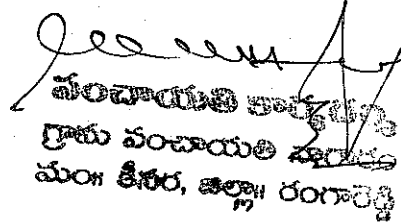 పంచాయతి కార్యదర్శి
గ్రామ పంచాయతి
మం॥ కీసర, జిల్లా॥ రంగారెడ్డి